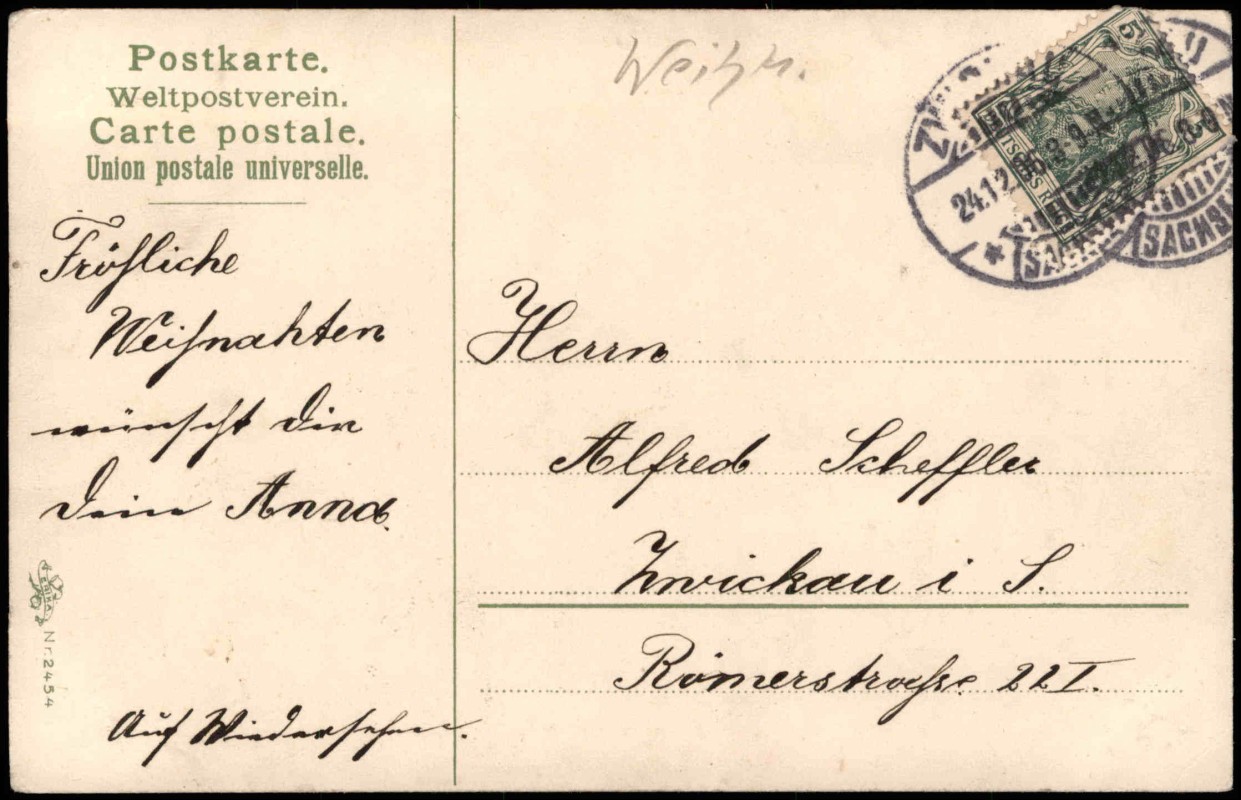 Postkarte.
Weltpostverein.
Carte postale.
Union postale universelle.
Weihn.
Fröhliche
Weihnahten
wünscht dir
deine Anna.
Auf Wiedersehen.
ERIKA
Nr. 2454
5
24.12.06. 8-9.N.
SACHSEN
Herrn
Alfred Scheffler
Zwickau i S.
Römerstraße 22 I.